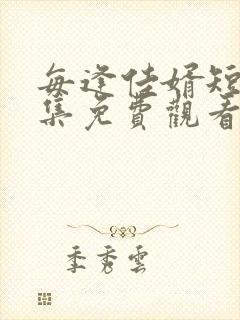 每逢佳婿短
集免費觀看
季秀雲